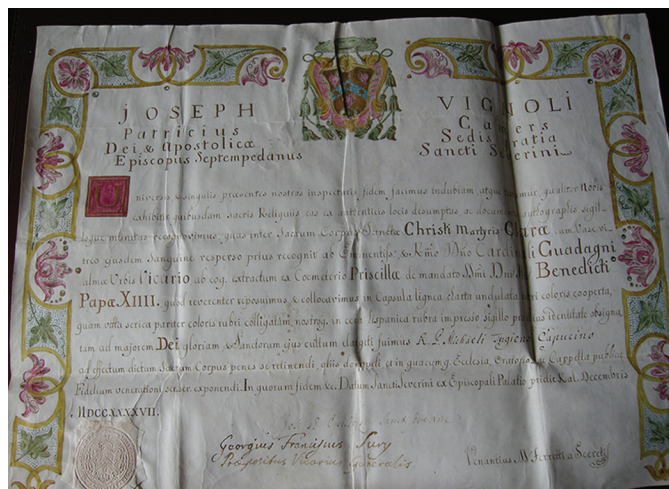 JOSEPH VIGNOLI
Patricius Ca ers
Dei & Apostolicæ Sedis ratia
Episcopus Septempedanus Sancti Severini
Universis & singulis præsentes nostras inspecturis fidem facimus indubiam qualiter Nobis
exhibitis quibusdam sacris Reliquiis eas ex autenticis locis desumptas ac documentis autographis sigil-
recognovimus quas inter Sacrum Corpus Sanctæ Christi Martyris Claræ cum Vase vi-
treo ejusdem Sanguine resperso prius recognit ab Eminentiss. & Rmo Dno Cardinali Guadagni
almæ Urbis Vicario ab eoq. extractum ex Coemeterio Priscillæ de mandato Benedicti
Papæ XIIII. quod reverenter reposuimus, & collocavimus in Capsula lignea charta undulata coloris cooperta,
quam vitta serica pariter coloris rubri colligatam, nostroq. in cera hispanica rubra impresso sigillo identitate obsigna-
tam ad majorem Dei gloriam & Sanctorum ejus cultum largiti fuimus R. P. Michaeli Capucino
ad effectum dictum Sacrum Corpus penes se retinendi, aliis donandi, et in quacumq. Ecclesia, Oratorio, ac Cappella publicæ
Fidelium venerationi exponendi. In quorum fidem &c. Datum Sancti Severini ex Episcopali Palatio pridie Kal. Decembris
MDCCXXXXVII.
Georgius Franciscus
Præpositus Vicarius Generalis
Venantius